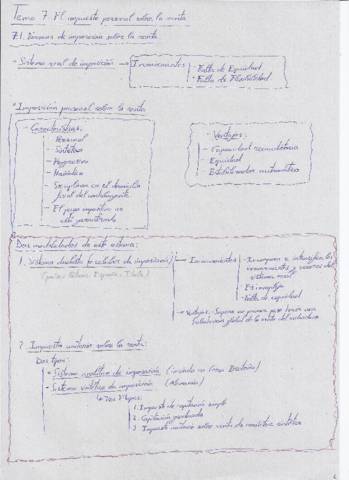 Tema 7. El impuesto personal sobre la renta
7.1. Formas de imposición sobre la renta
- Sistema real de imposición → Inconvenientes
- Falta de Equidad
- Falta de Flexibilidad
* Imposición personal sobre la renta
- Características:
- Personal
- Sintético
- Progresivo
- Periódico
- Se aplica en el domicilio
fiscal del contribuyente
- El pago impositivo no
está
- Ventajas:
- Capacidad recaudatoria
- Equidad
- Estabilizador automático
Dos modalidades de este sistema:
1. Sistema dualista (o cedular de imposición)
(países latinos, España, Italia)
→ Inconvenientes
- Incorpora e intensifica los
inconvenientes y errores del
sistema real
- Es complejo
- Falta de equidad
→ Ventajas: Supuso un primer paso hacia una
global de la renta del individuo
2. Impuesto unitario sobre la renta:
Dos tipos:
- Sistema analítico de imposición (iniciado en Gran Bretaña)
- Sistema sintético de imposición (Alemania)
↳ Dos
1. Impuesto de capitación simple
2. Capitación graduada
3. Impuesto unitario sobre renta de sintético